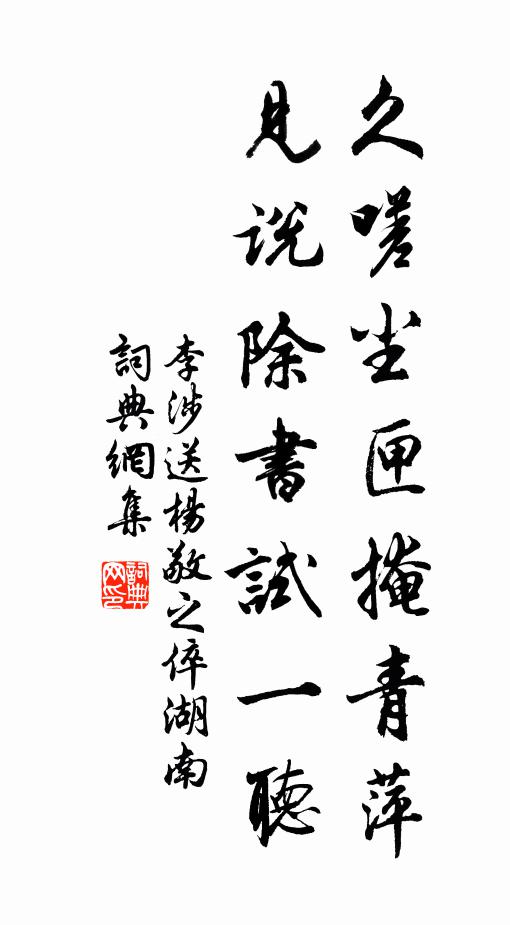 久嗟尘匣掩青萍
见说除書試一聽
李涉送楊敬之倅湖南
詞典網集
詞典网印